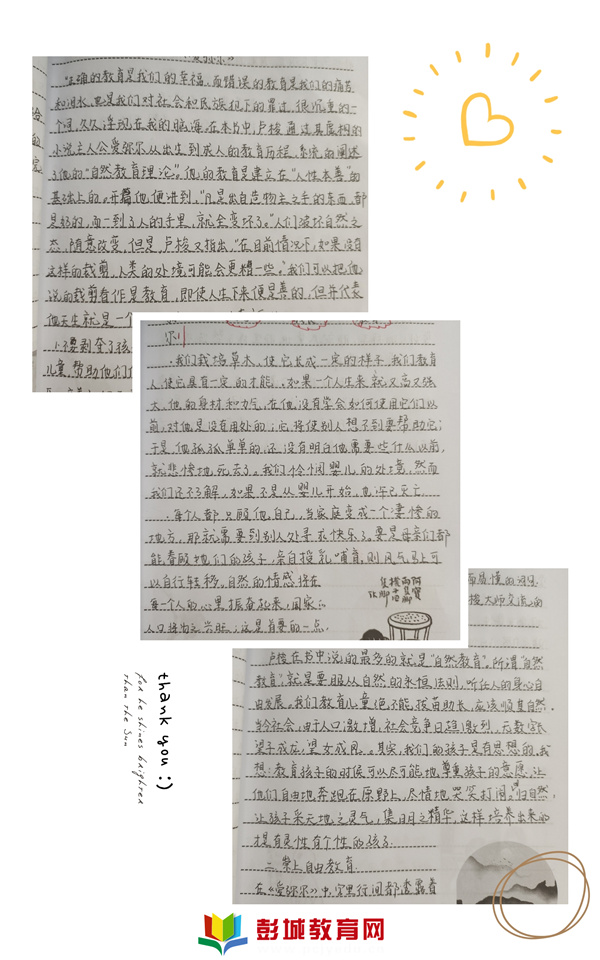 《爱弥尔》
正确的教育是我们的幸福，而错误的教育是我们的痛苦
和泪水，更是我们对社会和民族犯下的罪过，很沉重的一
个词，久久浮现在我的脑海，在本书中，卢梭通过其虚构的
小说主人公爱弥尔从出生到成人的教育历程，系统的阐述
了他的“自然教育理论”。他的教育是建立在“人性本善”的
基础上的。开篇他便讲到，“凡是出自造物主之手的东西，都
是好的，而一到了人的手里，就会变坏了。”人们破坏自然之
态，随意改变，但是卢梭又指出，“在目前情况下，如果没有
这样的裁剪，人类的处境可能会更糟一些。”我们可以把他
说的裁剪看作是教育，即使人生下来便是善的，但并代表
他天生就是一个
不要剥夺了孩
儿童，帮助他们
尔》
我们栽培草木，使它长成一定的样子，我们教育
人，使它具有一定的才能。如果一个人生来就又高又强
大，他的身材和力气，在他没有学会如何使用它们以
前，对他是没有用处的；它将使别人想不到要帮助它；
于是，他孤孤单单的，还没有明白他需要些什么以前，
就悲惨地死去了。我们怜悯婴儿的处境，然而
我们还不了解，如果不是从婴儿开始，也许已灭亡
每个人都只顾他自己，当家庭变成一个凄惨的
地方，那就需要到别人处寻求快乐了。要是母亲们都
能眷顾她们的孩子，亲自授乳哺育，则风气马上可
以自行转移，自然的情感将在
每一个人的心里振奋起来，国家
人口将为之兴旺；这是首要的一点，
而易懂的词汇
梭大师交流的
卢梭在书中说的最多的就是“自然教育”。所谓“自然
教育”，就是要服从自然的永恒法则，听任人的身心自
由发展。我们教育儿童绝不能拔苗助长，应该顺其自然。
当今社会，由于人口激增，社会竞争日趋激烈，无数家长
望子成龙，望女成凤。其实，我们的孩子是有思想的，我
想：教育孩子的时候可以尽可能地尊重孩子的意愿，让
他们自由地奔跑在原野上，尽情地哭笑打闹，归自然，
让孩子采天地之灵气，集日月之精华，这样培养出来的
才是有灵性有个性的孩子
二崇尚自由教育
在《爱弥尔》中，字里行间都透露着
thank you :)
for he shines brighter
than the Sun
彭城教育网